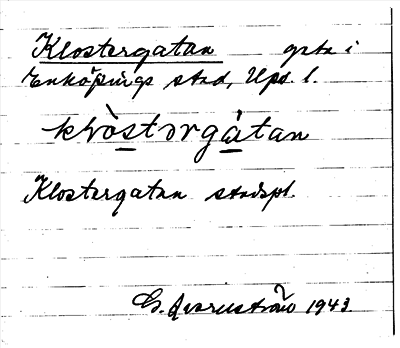 Klostergatan gata i
Enköpings stad, Ups. l.
klòstorgàtan
Klostergatan stadspl.
G. Qvarnström 1943.